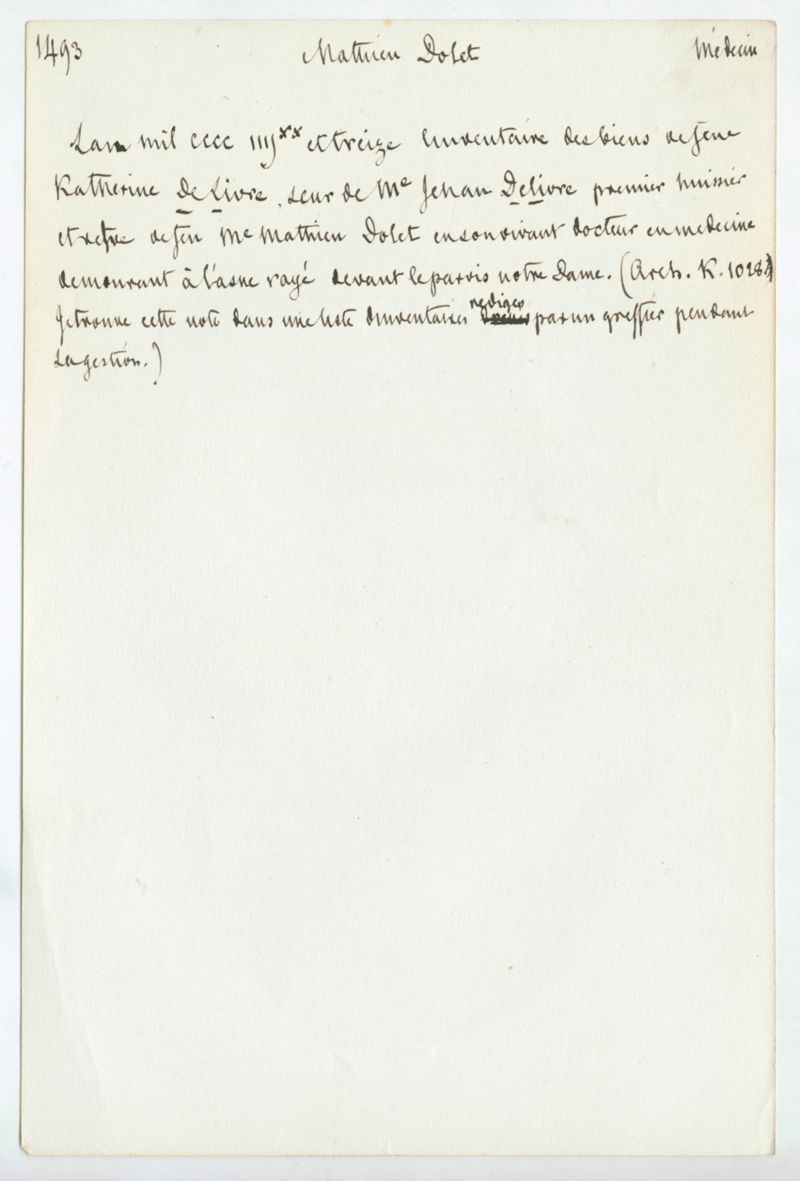 1493 Mathieu Dolet Médecin
Lan mil cccc iiijxx et treize linventaire des biens de feue
Katherine De Livre, seur de Me Jehan Delivre premier huissier
et vefve de feu Me Mathieu Dolet en son vivant docteur en medecine
demourant à l'asne rayé devant le parvis notre Dame. (Arch. K. 1028)
Je trouve cette note dans une liste d'inventaires rediges par un greffier pendant
sa gestion.)